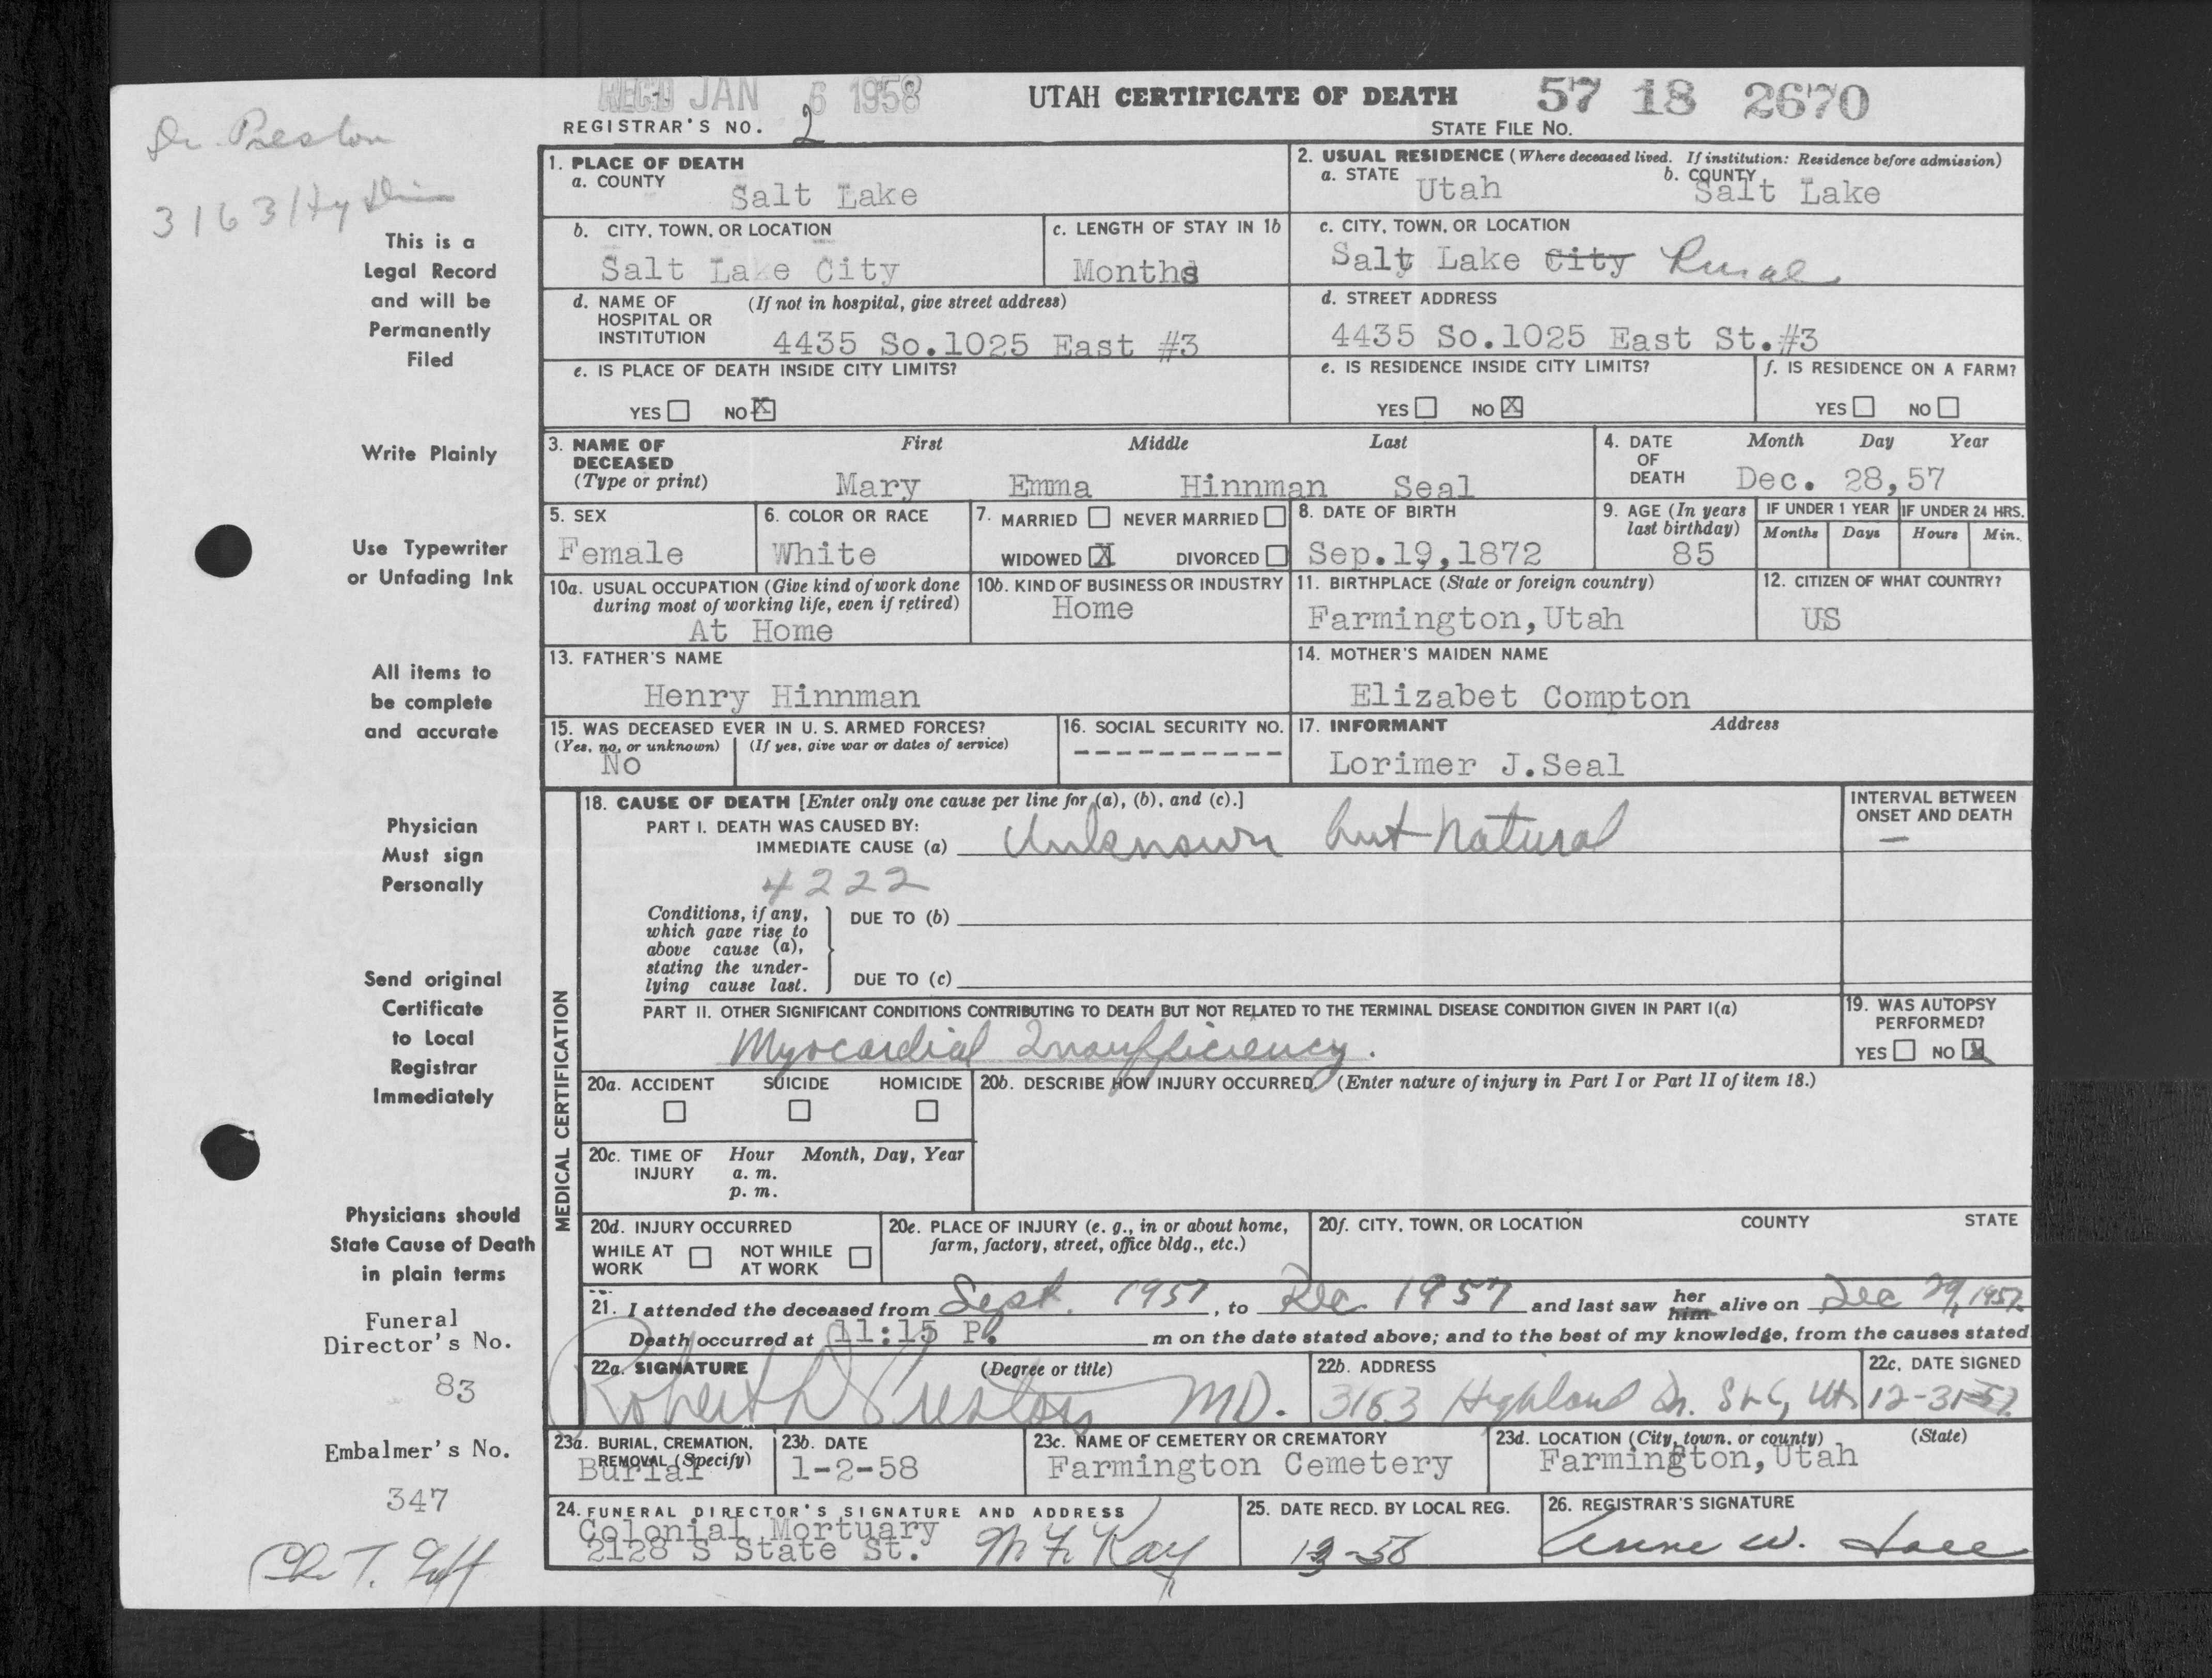 REC'D JAN 6 1958
UTAH CERTIFICATE OF DEATH 57 18 2670
REGISTRAR'S NO. 2
STATE FILE NO.
Dr. Preston
3163 Hy
This is a
Legal Record
and will be
Permanently
Filed
Write Plainly
Use Typewriter
or Unfading Ink
All items to
be complete
and accurate
Physician
Must sign
Personally
Send original
Certificate
to Local
Registrar
Immediately
Physicians should
State Cause of Death
in plain terms
Funeral
Director's No.
83
Embalmer's No.
347
1. PLACE OF DEATH
a. COUNTY
Salt Lake
2. USUAL RESIDENCE (Where deceased lived. If institution: Residence before admission)
a. STATE Utah b. COUNTY Salt Lake
b. CITY, TOWN, OR LOCATION
Salt Lake City
c. LENGTH OF STAY IN 1b
Months
c. CITY, TOWN, OR LOCATION
Salt Lake City Rural
d. NAME OF (If not in hospital, give street address)
HOSPITAL OR
INSTITUTION 4435 So.1025 East #3
d. STREET ADDRESS
4435 So.1025 East St.#3
e. IS PLACE OF DEATH INSIDE CITY LIMITS?
YES NO X
e. IS RESIDENCE INSIDE CITY LIMITS?
YES NO X
f. IS RESIDENCE ON A FARM?
YES NO
3. NAME OF First Middle Last
DECEASED
(Type or print) Mary Emma Hinnman Seal
4. DATE Month Day Year
OF
DEATH Dec. 28,57
5. SEX
Female
6. COLOR OR RACE
White
7. MARRIED NEVER MARRIED
WIDOWED X DIVORCED
8. DATE OF BIRTH
Sep.19,1872
9. AGE (In years
last birthday)
85
IF UNDER 1 YEAR
Months Days
IF UNDER 24 HRS.
Hours Min.
10a. USUAL OCCUPATION (Give kind of work done
during most of working life, even if retired)
At Home
10b. KIND OF BUSINESS OR INDUSTRY
Home
11. BIRTHPLACE (State or foreign country)
Farmington,Utah
12. CITIZEN OF WHAT COUNTRY?
US
13. FATHER'S NAME
Henry Hinnman
14. MOTHER'S MAIDEN NAME
Elizabet Compton
15. WAS DECEASED EVER IN U. S. ARMED FORCES?
(Yes, no, or unknown) (If yes, give war or dates of service)
No
16. SOCIAL SECURITY NO.
----------
17. INFORMANT Address
Lorimer J.Seal
MEDICAL CERTIFICATION
18. CAUSE OF DEATH [Enter only one cause per line for (a), (b), and (c).]
PART I. DEATH WAS CAUSED BY:
IMMEDIATE CAUSE (a) Unknown but natural
INTERVAL BETWEEN
ONSET AND DEATH
—
4222
Conditions, if any,
which gave rise to
above cause (a),
stating the under-
lying cause last.
DUE TO (b)
DUE TO (c)
PART II. OTHER SIGNIFICANT CONDITIONS CONTRIBUTING TO DEATH BUT NOT RELATED TO THE TERMINAL DISEASE CONDITION GIVEN IN PART I(a)
Myocardial Insufficiency.
19. WAS AUTOPSY
PERFORMED?
YES NO X
20a. ACCIDENT SUICIDE HOMICIDE
20b. DESCRIBE HOW INJURY OCCURRED. (Enter nature of injury in Part I or Part II of item 18.)
20c. TIME OF Hour Month, Day, Year
INJURY a. m.
p. m.
20d. INJURY OCCURRED
WHILE AT NOT WHILE
WORK AT WORK
20e. PLACE OF INJURY (e. g., in or about home,
farm, factory, street, office bldg., etc.)
20f. CITY, TOWN, OR LOCATION COUNTY STATE
21. I attended the deceased from Sept. 1957, to Dec 1957 and last saw her him alive on Dec 29, 1957.
Death occurred at 11:15 P. m on the date stated above; and to the best of my knowledge, from the causes stated
22a. SIGNATURE (Degree or title)
Robert D Preston MD.
22b. ADDRESS
3163 Highland Dr. SLC, Ut
22c. DATE SIGNED
12-31-57
23a. BURIAL, CREMATION,
REMOVAL (Specify)
Burial
23b. DATE
1-2-58
23c. NAME OF CEMETERY OR CREMATORY
Farmington Cemetery
23d. LOCATION (City, town, or county) (State)
Farmington,Utah
24. FUNERAL DIRECTOR'S SIGNATURE AND ADDRESS
Colonial Mortuary
2128 S State St.
25. DATE RECD. BY LOCAL REG.
26. REGISTRAR'S SIGNATURE
Anne W.